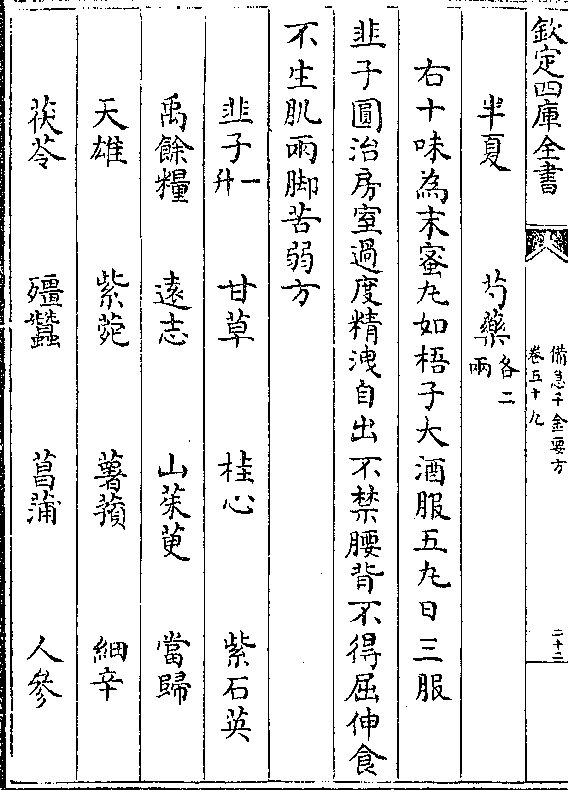 欽定四庫全書
備急千金要方
卷五十九
二十二
半夏 芍藥各二兩
右十味為末蜜丸如梧子大酒服五丸日三服
韭子圓治房室過度精洩自出不禁腰背不得屈伸食
不生肌兩脚苦弱方
韭子一升 甘草 桂心 紫石英
禹餘糧 遠志 山茱萸 當歸
天雄 紫菀 薯蕷 細辛
茯苓 殭蠶 菖蒲 人參